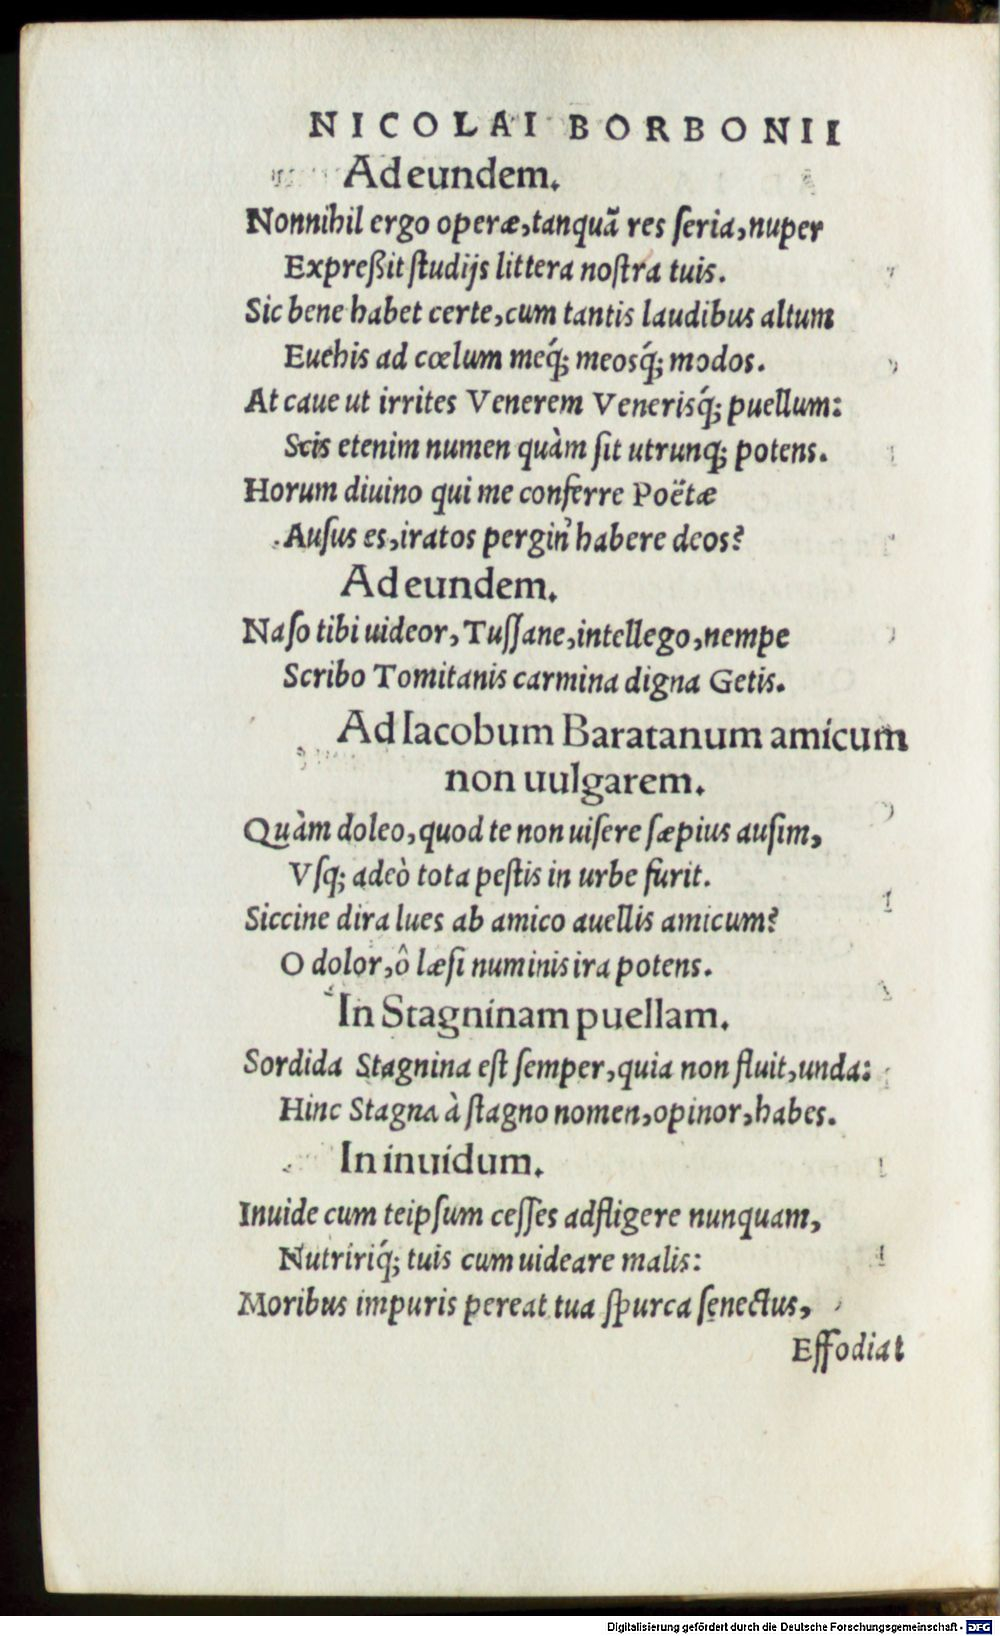 NICOLAI BORBONII
Ad eundem.
Nonnihil ergo operæ, tanquã res ſeria, nuper
Expreßit ſtudijs littera noſtra tuis.
Sic bene habet certe, cum tantis laudibus altum
Euehis ad cœlum meq́; meosq́; modos.
At caue ut irrites Venerem Venerisq́; puellum:
Scis etenim numen quàm ſit utrunq; potens.
Horum diuino qui me conferre Poëtæ
Auſus es, iratos pergin' habere deos?
Ad eundem.
Naſo tibi uideor, Tuſſane, intellego, nempe
Scribo Tomitanis carmina digna Getis.
Ad Iacobum Baratanum amicum
non uulgarem.
Quàm doleo, quod te non uiſere ſæpius auſim,
Vſq; adeò tota peſtis in urbe furit.
Siccine dira lues ab amico auellis amicum?
O dolor, ô læſi numinis ira potens.
In Stagninam puellam.
Sordida Stagnina eſt ſemper, quia non fluit, unda:
Hinc Stagna à ſtagno nomen, opinor, habes.
In inuidum.
Inuide cum teipſum ceſſes adfligere nunquam,
Nutririq́; tuis cum uideare malis:
Moribus impuris pereat tua ſpurca ſenectus,
Effodiat
Digitalisierung gefördert durch die Deutsche Forschungsgemeinschaft - DFG